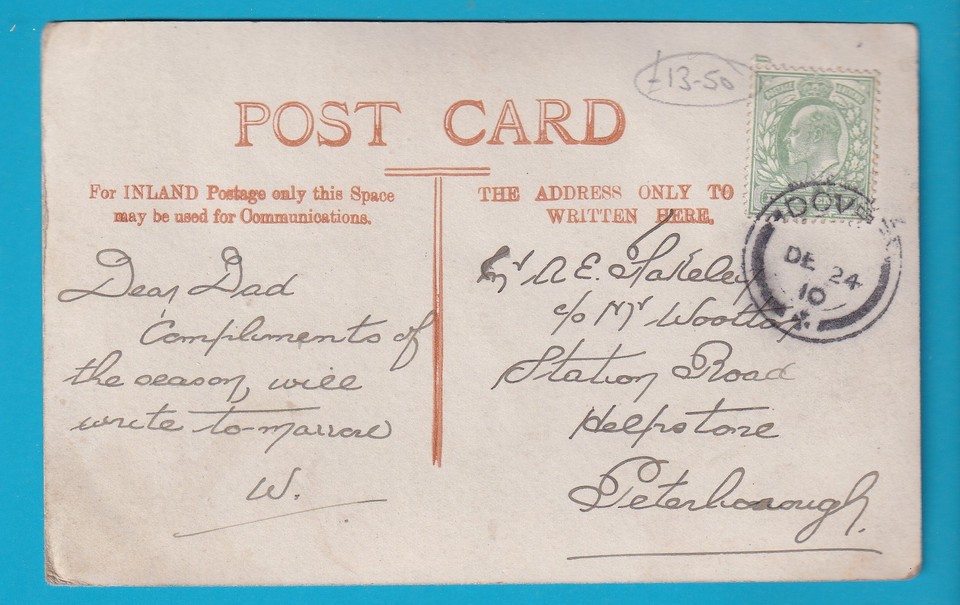 -13-50
POST CARD
For INLAND Postage only this Space
may be used for Communications.
THE ADDRESS ONLY TO
WRITTEN HERE.
Dear Dad
Compliments of
the season, will
write to-morrow
W.
Mr A E.
c/o Mr Wootton
Station Road
Helpstone
Peterborough.
DOVE
DE 24
10